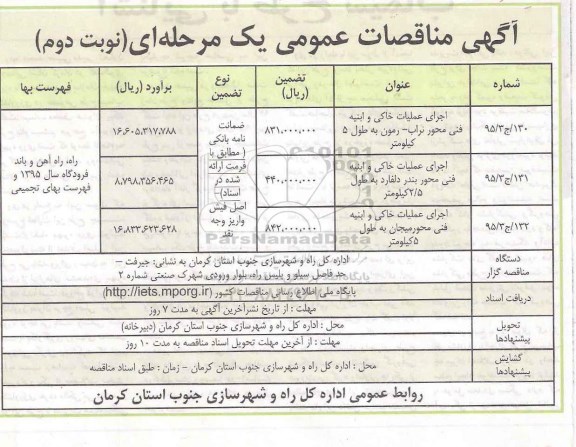 آگهی مناقصات عمومی یک مرحله‌ای(نوبت دوم)
شماره
عنوان
تضمین
(ریال)
نوع
تضمین
برآورد (ریال)
فهرست بها
۹۵/۳/ج/۱۳۰
اجرای عملیات خاکی و ابنیه
فنی محور نراب- رمون به طول ۵
کیلومتر
۸۳۱,۰۰۰,۰۰۰
۱۶,۶۰۵,۳۱۷,۷۸۸
۹۵/۳/ج/۱۳۱
اجرای عملیات خاکی و ابنیه
فنی محور بندر دلفارد به طول
۲/۵کیلومتر
۴۴۰,۰۰۰,۰۰۰
۸,۷۹۸,۳۵۶,۴۶۵
۹۵/۳/ج/۱۳۲
اجرای عملیات خاکی و ابنیه
فنی محورمیجان به طول
۵کیلومتر
۸۴۲,۰۰۰,۰۰۰
۱۶,۸۳۳,۶۲۳,۶۲۸
ضمانت
نامه بانکی
( مطابق با
فرمت ارائه
شده در
اسناد)
اصل فیش
واریز وجه
نقد
راه، راه آهن و باند
فرودگاه سال ۱۳۹۵ و
فهرست بهای تجمیعی
دستگاه
مناقصه گزار
اداره کل راه و شهرسازی جنوب استان کرمان به نشانی: جیرفت –
حد فاصل سیلو و پلیس راه، بلوار ورودی شهرک صنعتی شماره ۲
دریافت اسناد
پایگاه ملی اطلاع رسانی مناقصات کشور (http://iets.mporg.ir)
مهلت : از تاریخ نشرآخرین آگهی به مدت ۷ روز
تحویل
پیشنهادها
محل : اداره کل راه و شهرسازی جنوب استان کرمان (دبیرخانه)
مهلت : از آخرین مهلت تحویل اسناد مناقصه به مدت ۱۰ روز
گشایش
پیشنهادها
محل : اداره کل راه و شهرسازی جنوب استان کرمان - زمان : طبق اسناد مناقصه
روابط عمومی اداره کل راه و شهرسازی جنوب استان کرمان
ParsNamadData